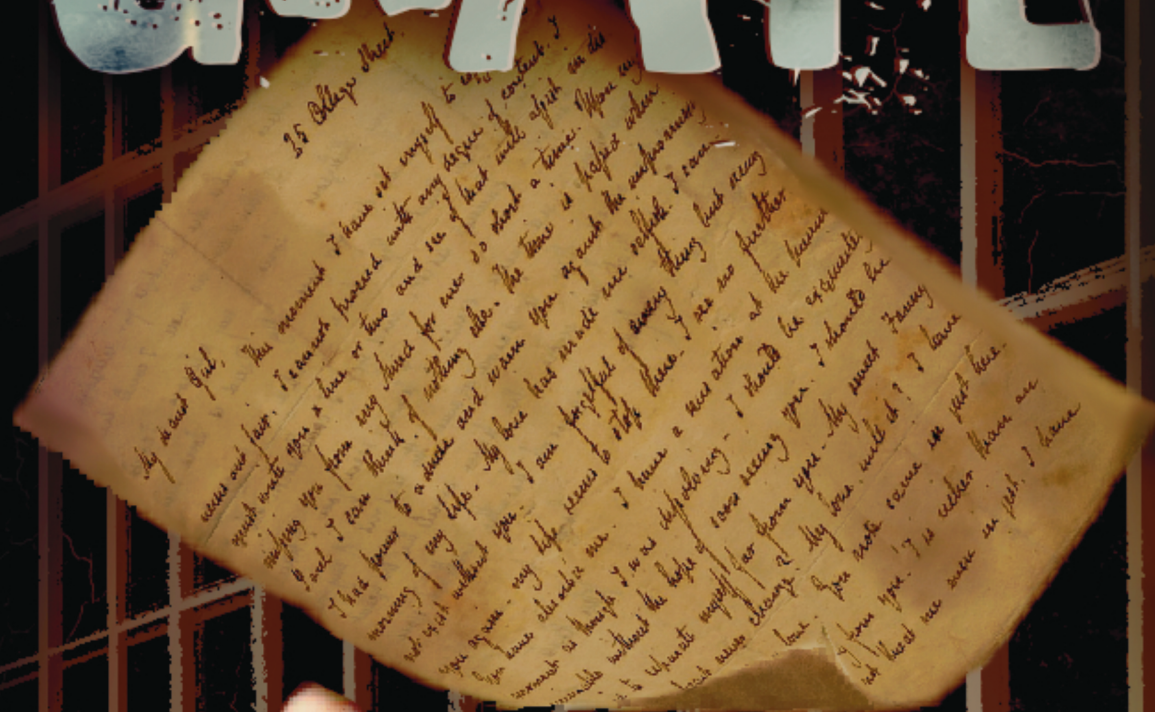 25 College Street.
My dearest Girl,
This moment I have set myself to
verses out fair. I cannot proceed with any degree of content. I
must write you a line or two and see if that will assist in dis
missing you from my Mind for ever so short a time. Upon my
Soul I can think of nothing else. The time is passed when
I had power to advise and warn you against the unpromising
morning of my Life. My love has made me selfish. I can
not exist without you. I am forgetful of every thing but seeing
you again - my Life seems to stop there - I see no further
You have absorb'd me. I have a sensation at the
moment as though I was dissolving - I should be exquisitely
miserable without the hope of soon seeing you. I should be
to separate myself far from you. My sweet Fanny
heart never change? My love, will it? I have
love Your note came in just here.
from you. 'T is richer than an
not threat me even in jest. I have